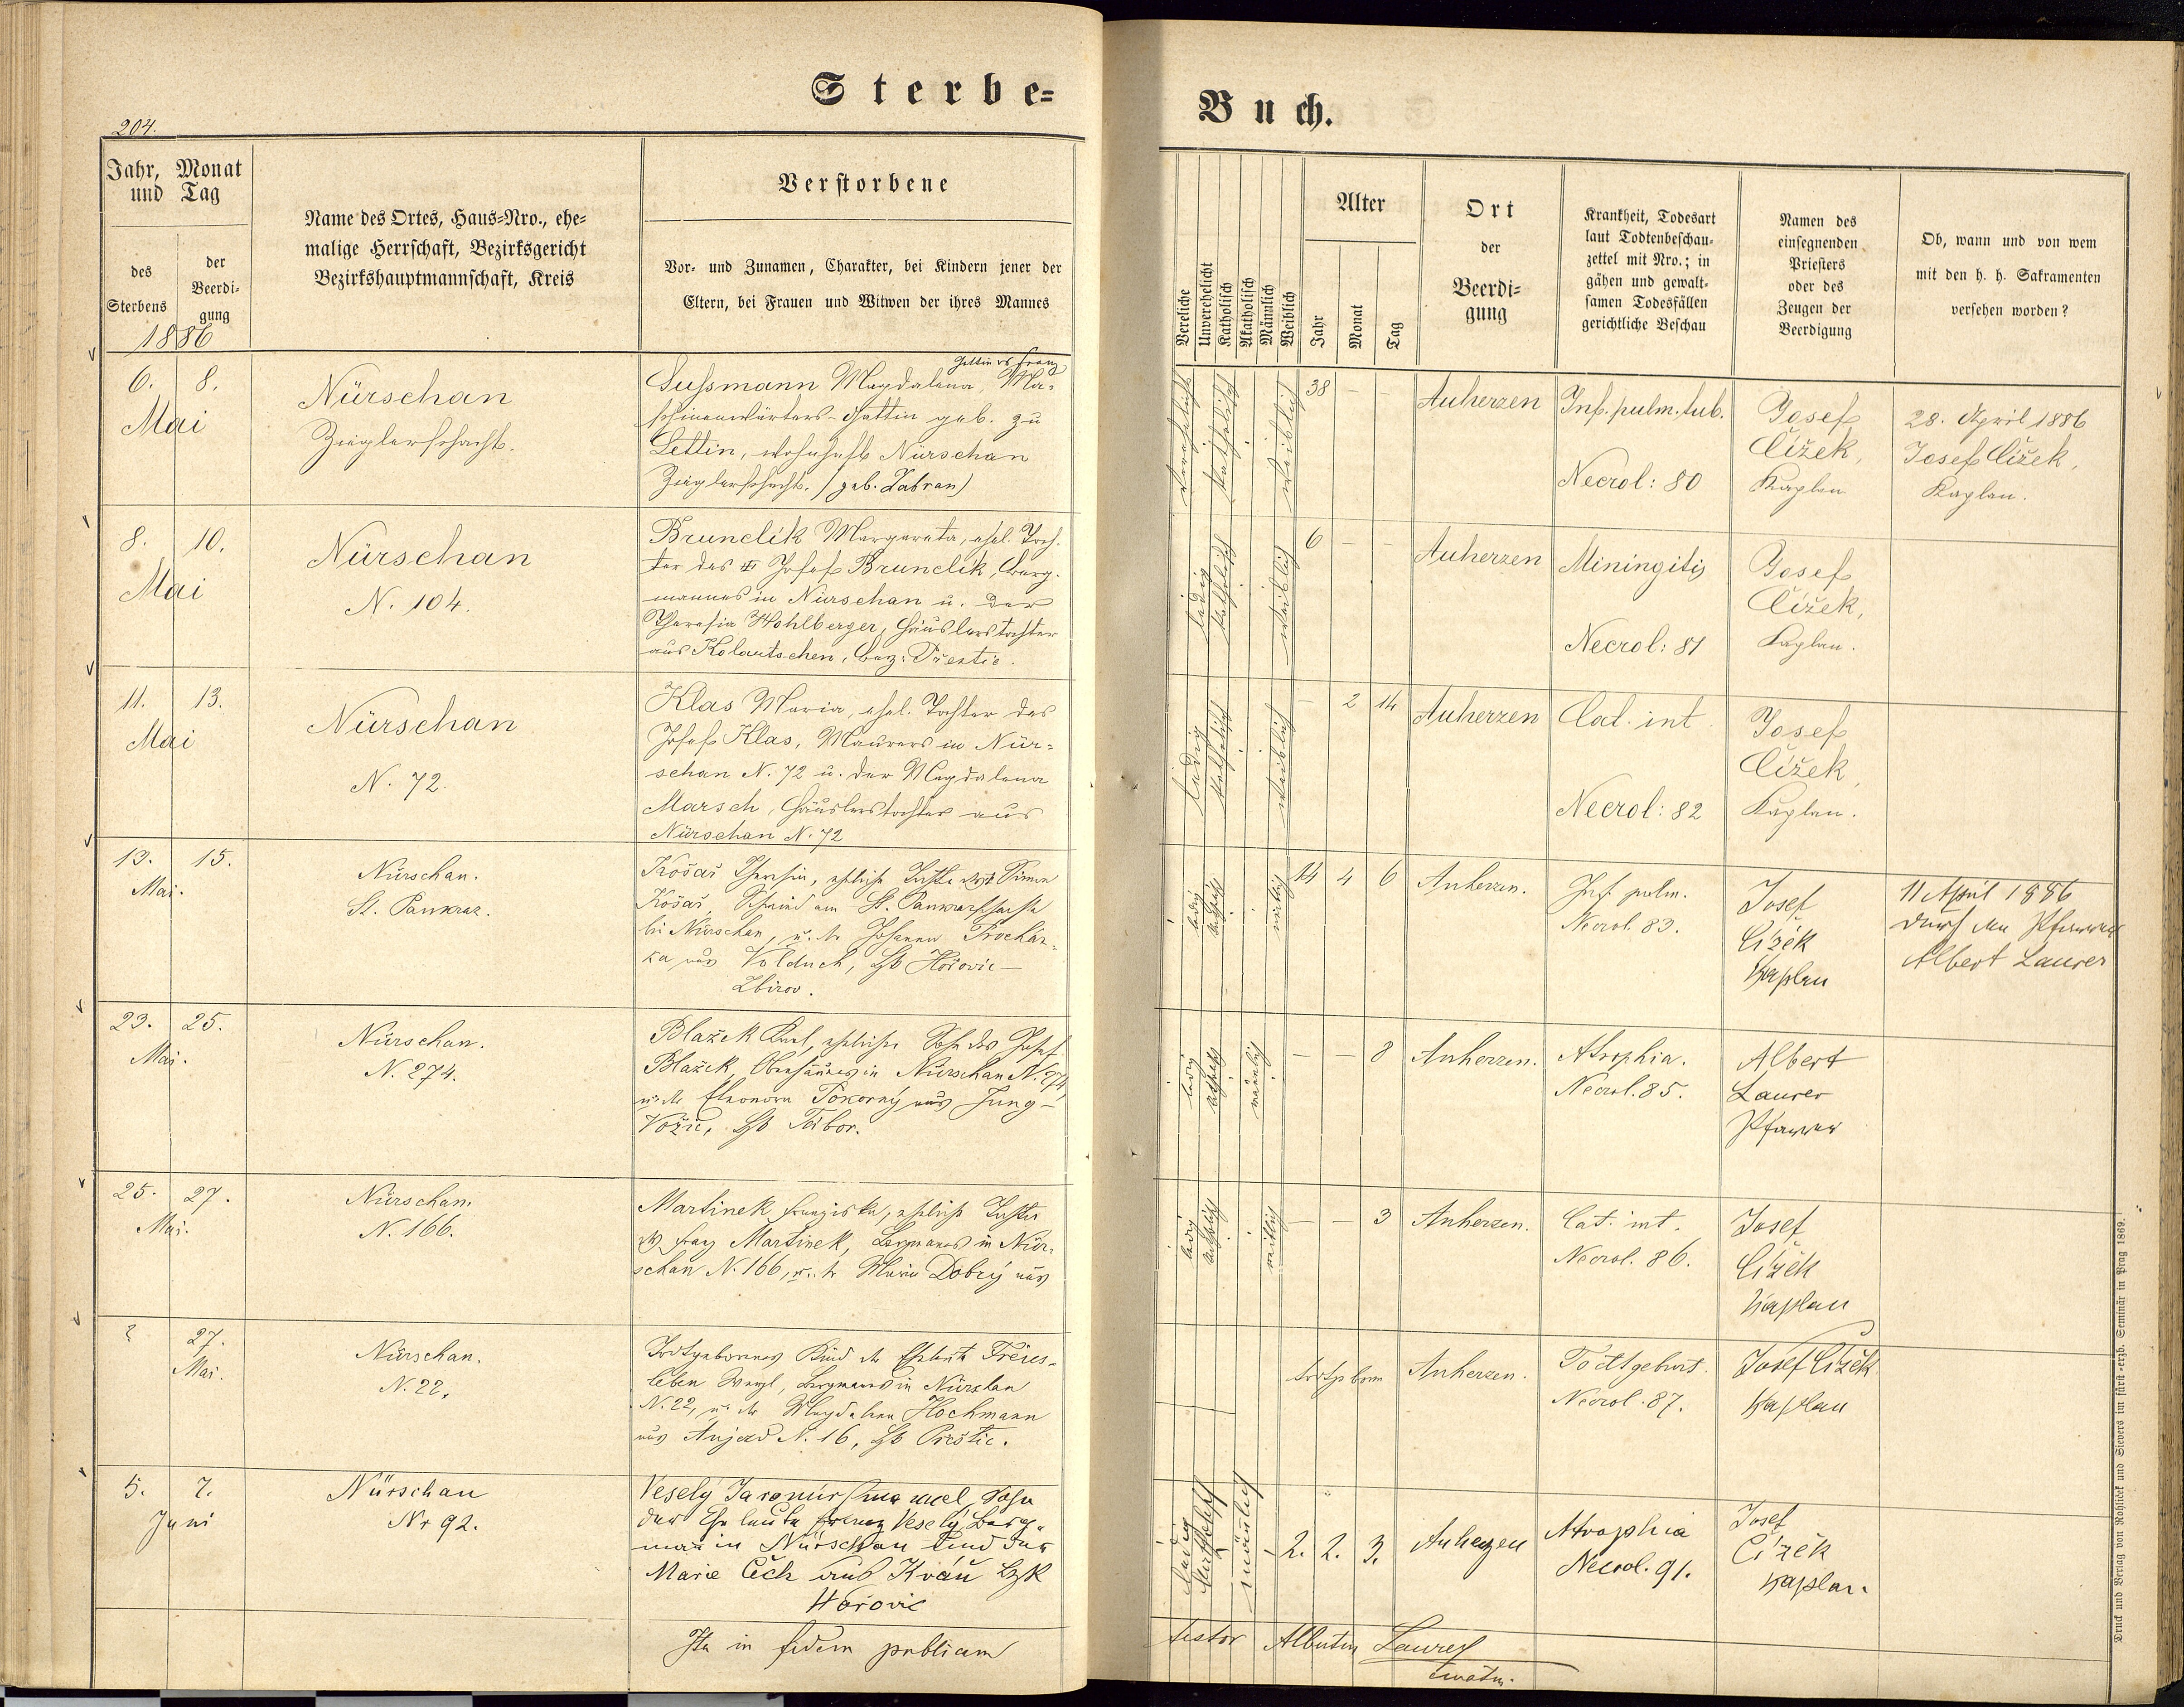 Sterbe=
Buch.
204.
Jahr, Monat
und Tag
des
Sterbens
der
Beerdi-
gung
1886
Name des Ortes, Haus=Nro., ehe-
malige Herrschaft, Bezirksgericht
Bezirkshauptmannschaft, Kreis
Verstorbene
Vor- und Zunamen, Charakter, bei Kindern jener der
Eltern, bei Frauen und Witwen der ihres Mannes
Vereliche
Unverehelicht
Katholisch
Akatholisch
Männlich
Weiblich
Alter
Jahr
Monat
Tag
Ort
der
Beerdi-
gung
Krankheit, Todesart
laut Todtenbeschau-
zettel mit Nro.; in
gähen und gewalt-
samen Todesfällen
gerichtliche Beschau
Namen des
einsegnenden
Priesters
oder des
Zeugen der
Beerdigung
Ob, wann und von wem
mit den h. h. Sakramenten
versehen worden?
6. 8.
Mai
Nürschan
Zieglerschacht.
Gattin des Franz
Sussmann Magdalena, Ma-
schinenwärters-Gattin geb. zu
Lettin, wohnhaft Nürschan
Zieglerschacht. (geb. Zabran)
verehelicht
katholisch
weiblich
38 – –
Auherzen
Inf. pulm. tub.
Necrol: 80
Josef
Čížek,
Kaplan
28. April 1886
Josef Čížek,
Kaplan.
8. 10.
Mai
Nürschan
N. 104.
Brunclík Margareta, ehel. Toch-
ter des Josef Brunclík, Berg-
mannes in Nürschan u. der
Theresia Wohlberger, Häuslerstochter
aus Kolautschen, Bez: Přestic.
ledig
katholisch
weiblich
6 – –
Auherzen
Miningitis
Necrol: 81
Josef
Čížek,
Kaplan.
11. 13.
Mai
Nürschan
N. 72.
Klas Maria, ehel. Tochter des
Josef Klas, Maurers in Nür-
schan N. 72 u. der Magdalena
Marsch, Häuslerstochter aus
Nürschan N. 72
ledig
katholisch
weiblich
– 2 14
Auherzen
Cat. int.
Necrol: 82
Josef
Čížek,
Kaplan.
13. 15.
Mai.
Nürschan.
St. Pankraz.
Košař Theresia, eheliche Tochter des Simon
Košař, Schmied am St. Pankrazschachte
bei Nürschan, u. der Johanna Procház-
ka aus Volduch, Bzk Hořovic-
Zbirov.
ledig
weiblich
14 4 6
Auherzen.
Inf. pulm.
Necrol. 83.
Josef
Čížek
Kaplan
11 April 1886
durch den Pfarrer
Albert Laurer
23. 25.
Mai.
Nürschan.
N. 274.
Blažek Karl, ehelicher Sohn des Josef
Blažek, in Nürschan N. 274,
u. der Eleonora Pokorný aus Jung-
Vožic, Bzk Tábor.
ledig
männlich
– – 8
Auherzen.
Atrophia.
Necrol. 85.
Albert
Laurer
Pfarrer
25. 27.
Mai.
Nürschan.
N. 166.
Martinek Franziska, eheliche Tochter
des Franz Martinek, Bergmanns in Nür-
schan N. 166, u. der Maria Dobrý aus
ledig
weiblich
– – 3
Auherzen.
Cat. int.
Necrol. 86.
Josef
Čížek
Kaplan
? 27.
Mai.
Nürschan.
N. 22.
Todtgeborenes Kind der Eheleute Freies-
leben Wenzl, Bergmanns in Nürschan
N. 22, u. der Magdalena Hochmann
aus Aujezd N. 16, Bzk Přestic.
todtgeboren
Auherzen.
Todtgeburt.
Necrol. 87.
Josef Čížek
Kaplan
5. 7.
Juni
Nürschan
Nr 92.
Veselý Jaromír Emanuel, Sohn
der Eheleute Franz Veselý Berg-
man in Nürschan und der
Marie Čech aus Kváň Bzk
Hořovic
ledig
katholisch
männlich
2. 2. 3.
Auherzen
Atrophia
Necrol. 91.
Josef
Čížek
Kaplan.
Ita in fidem publicam
testor Albertus Laurer
curatus.
Druck und Verlag von Rohliček und Sievers im fürst-erzb. Seminär in Prag 1869.